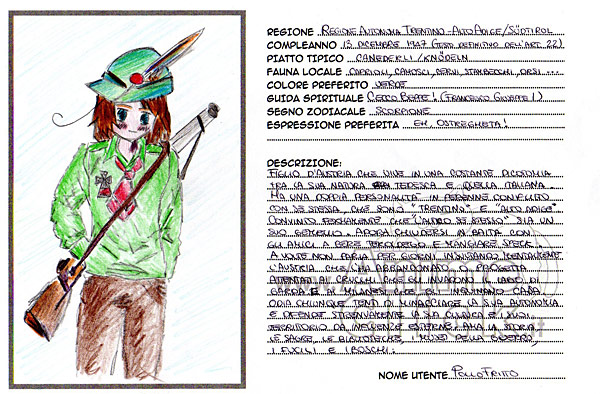 REGIONE REGIONE AUTONOMA TRENTINO-ALTO ADIGE/SÜDTIROL
COMPLEANNO 13 DICEMBRE 1947 (TESTO DEFINITIVO DELL'ART. 22)
PIATTO TIPICO CANEDERLI/KNÖDELN
FAUNA LOCALE CAPRIOLI, CAMOSCI, CERVI, STAMBECCHI, ORSI ....
COLORE PREFERITO VERDE
GUIDA SPIRITUALE CECCO BEPPE! (FRANCESCO GIUSEPPE I)
SEGNO ZODIACALE SCORPIONE
ESPRESSIONE PREFERITA EH, OSTREGHETA!
DESCRIZIONE:
FIGLIO D'AUSTRIA CHE VIVE IN UNA COSTANTE DICOTOMIA
TRA LA SUA NATURA TEDESCA E QUELLA ITALIANA.
HA UNA DOPPIA PERSONALITA' IN PERENNE CONFLITTO
CON SE STESSA, CHE SONO "TRENTINO" E "ALTO ADIGE"
CONVINTO FERMAMENTE CHE "L'ALTRO SE STESSO" SIA UN
SUO GEMELLO. ADORA CHIUDERSI IN BAITA CON
GLI AMICI A BERE TEROLDEGO E MANGIARE SPECK.
A VOLTE NON PARLA PER GIORNI INSULTANDO MENTALMENTE
L'AUSTRIA CHE L'HA ABBANDONATO E PROGETTA
ATTENTATI AI CRUCCHI CHE GLI INVADONO IL LAGO DI
GARDA E AI MILANESI CHE GLI INQUINANO CASA.
ODIA CHIUNQUE TENTI DI MINACCIARE LA SUA AUTONOMIA
E DIFENDE STRENUAMENTE LA SUA CULTURA E I SUOI
TERRITORIO DA INFLUENZE ESTERNE. AMA LA STORIA,
LE SAGRE, LE BIBLIOTECHE, I MUSEI DELLA GUERRA,
I FUCILI E I BOSCHI.
NOME UTENTE POLLOFRITTO